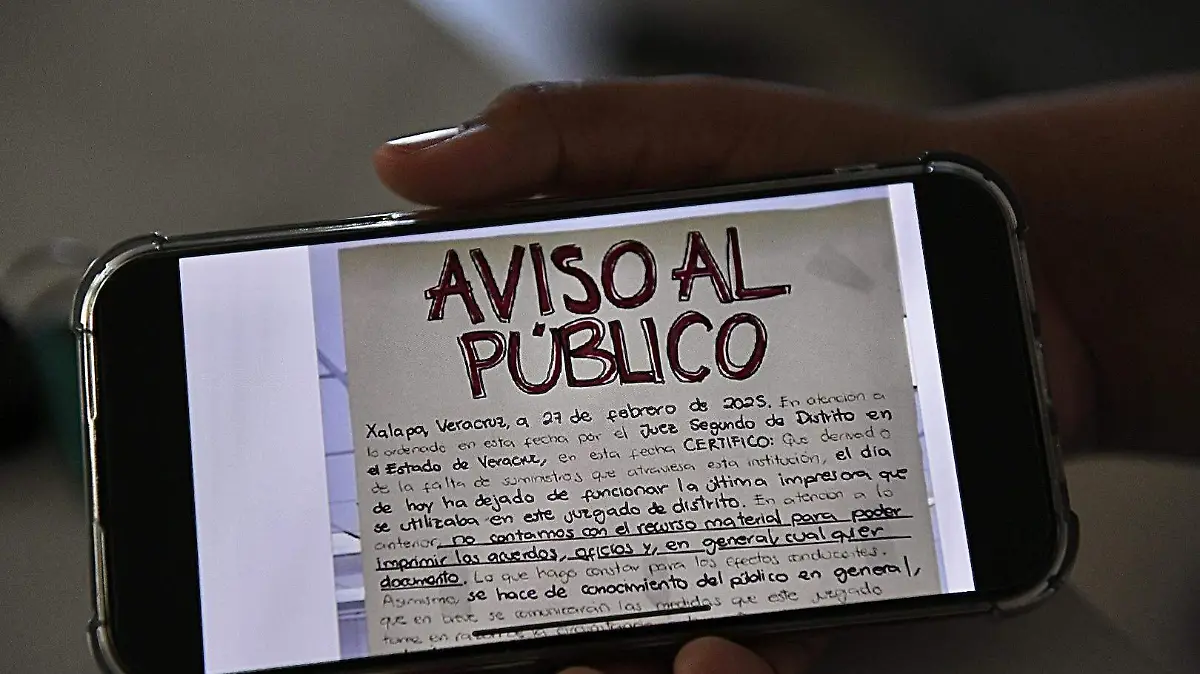 AVISO AL
PÚBLICO
Xalapa, Veracruz, a 27 de febrero de 2025. En atención a
lo ordenado en esta fecha por el Juez Segundo de Distrito en
el Estado de Veracruz, en esta fecha CERTIFICO: Que derivado
de la falta de suministros que atraviesa esta institución, el día
de hoy ha dejado de funcionar la última impresora que
se utilizaba en este juzgado de distrito. En atención a lo
anterior, no contamos con el recurso material para poder
imprimir los acuerdos, oficios y, en general, cualquier
documento. Lo que hago constar para los efectos conducentes.
Asimismo, se hace de conocimiento del público en general,
que en breve se comunicarán las medidas que este juzgado
tome en razón de la